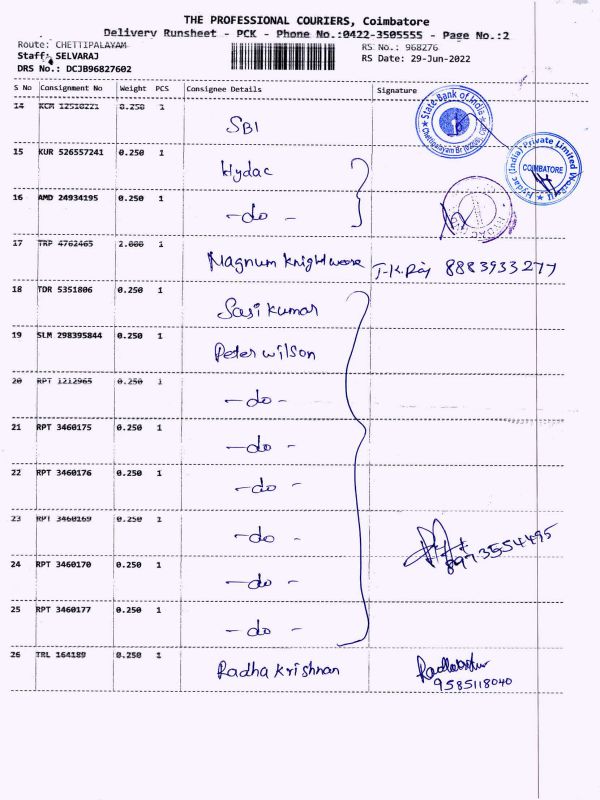 THE PROFESSIONAL COURIERS, Coimbatore
Delivery Runsheet - PCK - Phone No.:0422-3505555 - Page No.:2
Route: CHETTIPALAYAM
RS No.: 968276
Staff: SELVARAJ
RS Date: 29-Jun-2022
DRS No.: DCJB96827602
S No Consignment No Weight PCS Consignee Details Signature
14 KCM 12510221 0.250 1 SBI
State Bank of India
15 KUR 526557241 0.250 1 Hydac
Hydac (India) Private Limited
COIMBATORE
16 AMD 24934195 0.250 1 -do-
17 TRP 4762465 2.000 1 Magnum Knightweare T-K.Raj 8883933277
18 TDR 5351806 0.250 1 Sasikumar
19 SLM 298395844 0.250 1 Peter wilson
20 RPT 1212965 0.250 1 -do-
21 RPT 3460175 0.250 1 -do-
22 RPT 3460176 0.250 1 -do-
23 RPT 3460169 0.250 1 -do-
8973554495
24 RPT 3460170 0.250 1 -do-
25 RPT 3460177 0.250 1 -do-
26 TRL 164189 0.250 1 Radha Krishnan
9585118040